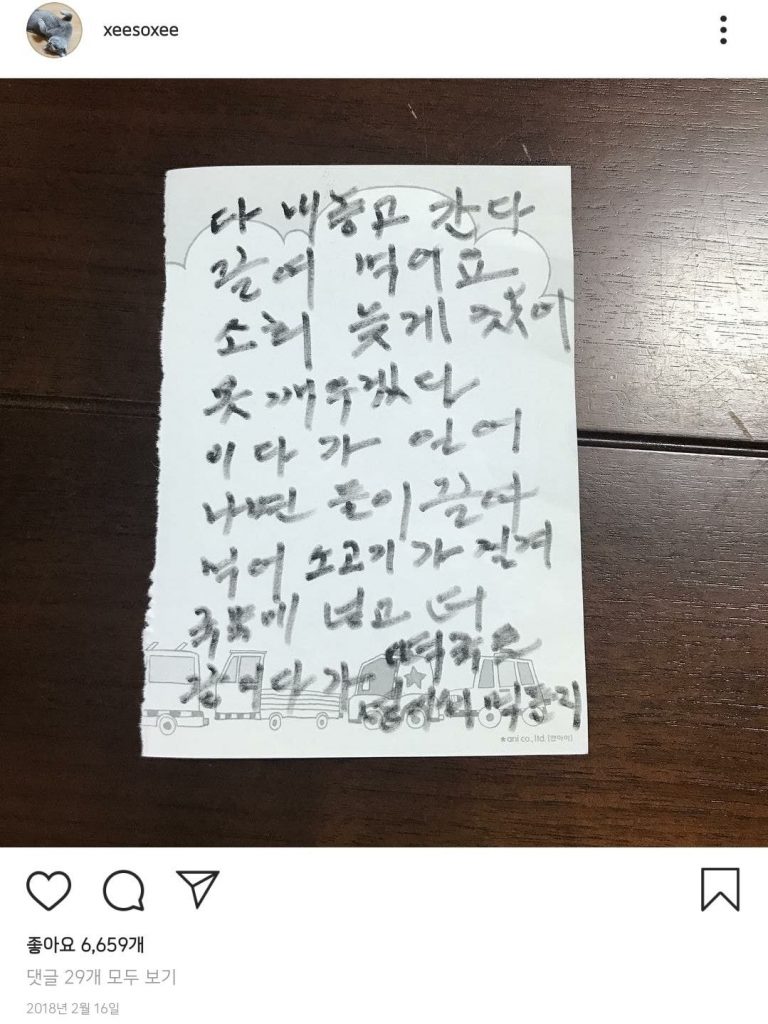 xeesoxee
다 내놓고 간다
끌여 먹어요
소희 늦게 잤어
못 깨우겠다
이다가 일어
나면 둘이 끌여
먹어 소고기가 질겨
국물에 넣고 더
끌이다가
★ani co., ltd.
좋아요 6,659개
댓글 29개 모두 보기
2018년 2월 16일